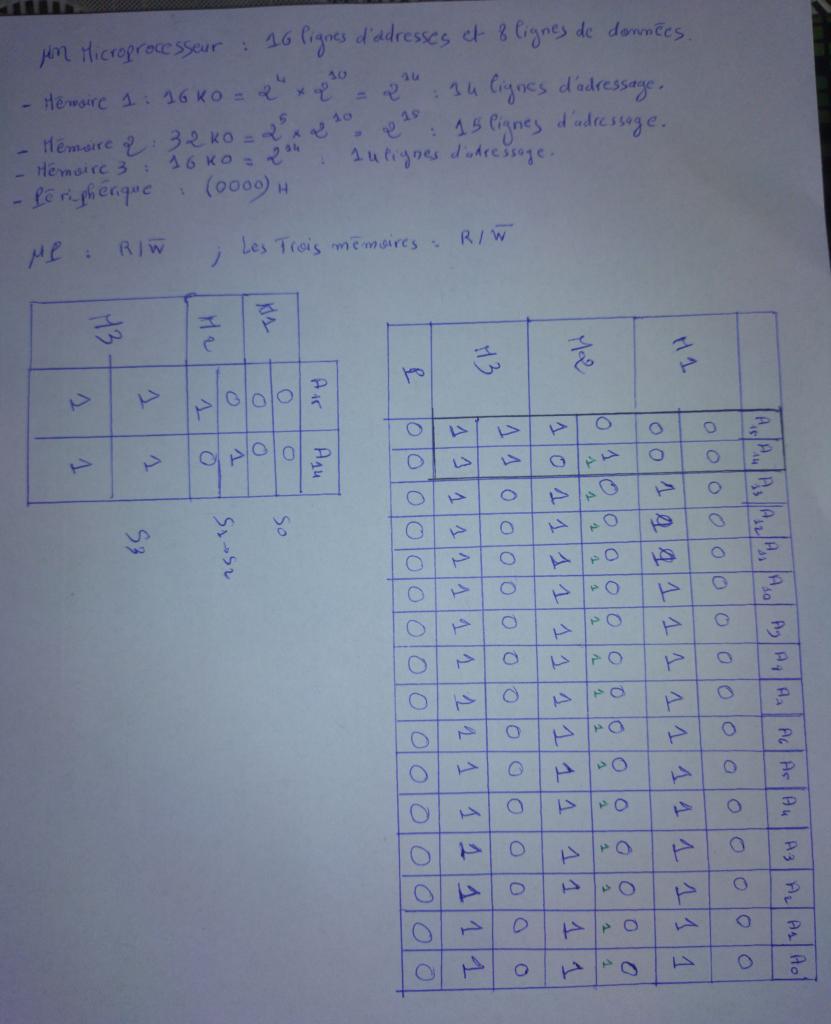 μn Microprocesseur : 16 lignes d'adresses et 8 lignes de données.
- Mémoire 1 : 16 KO = 2^4 × 2^10 = 2^14 : 14 lignes d'adressage.
- Mémoire 2 : 32 KO = 2^5 × 2^10 = 2^15 : 15 lignes d'adressage.
- Mémoire 3 : 16 KO = 2^14 : 14 lignes d'adressage.
- Périphérique : (0000)H
μP : R/W̅ ; Les Trois mémoires : R/W̅
A15 A14 A13 A12 A11 A10 A9 A8 A7 A6 A5 A4 A3 A2 A1 A0
M1 0 0 0 0 0 0 0 0 0 0 0 0 0 0 0 0
0 0 1 1 1 1 1 1 1 1 1 1 1 1 1 1
M2 0 1 0 0 0 0 0 0 0 0 0 0 0 0 0 0
1 1 1 1 1 1 1 1 1 1 1 1 1 1 1
1 0 1 1 1 1 1 1 1 1 1 1 1 1 1 1
M3 1 1 0 0 0 0 0 0 0 0 0 0 0 0 0 0
1 1 1 1 1 1 1 1 1 1 1 1 1 1 1 1
P 0 0 0 0 0 0 0 0 0 0 0 0 0 0 0 0
A15 A14
M1 0 0
0 0 S0
M2 0 1
1 0 S1→S2
M3 1 1
1 1 S3